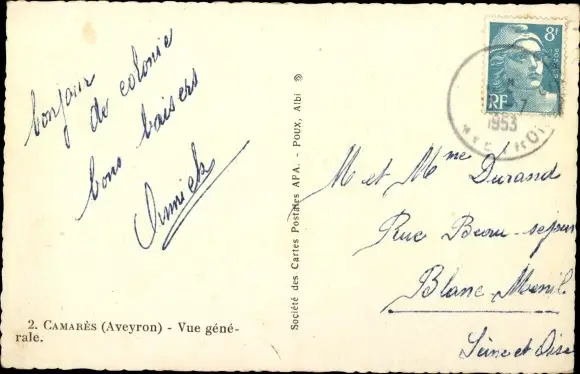 bonjour
de colonie
bons baisers
Annick
2. CAMARÈS (Aveyron) - Vue géné-
rale.
Société des Cartes Postales APA. - POUX, Albi ®
8F
RF
1953
M et Mme Durand
Rue Beau-sejour
Blanc-Menil
Seine et Oise